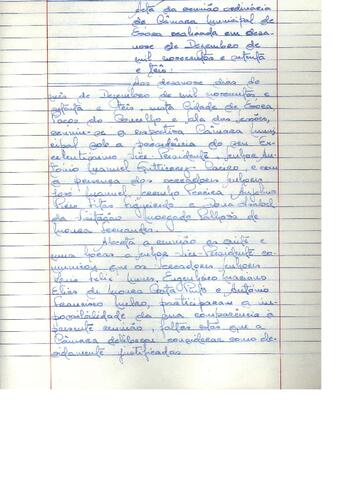 Acta da reunião ordinária
da Câmara Municipal de
Évora realizada em deza-
nove de Dezembro de
mil novecentos e oitenta
e três:
Aos dezanove dias do
mês de Dezembro de mil novecentos e
oitenta e três, nesta Cidade de Évora
Paços do Concelho e sala das sessões,
reuniu-se a respectiva Câmara Muni-
cipal sob a presidência do seu Ex-
celentíssimo Vice-Presidente, senhor An-
tónio Manuel e com
a presença dos vereadores senhores
José Manuel Pereira,
Figueiredo e Dona Isabel
da Visitação de
Moura Fernandes.
Aberta a reunião às vinte e
uma horas o senhor Vice-Presidente co-
municou que os Vereadores senhores
Nunes, Engenheiro
Elias de Moura e António
Francisco, participaram a im-
possibilidade da sua comparência à
presente reunião, faltas estas que a
Câmara deliberou considerar como de-
vidamente justificadas.